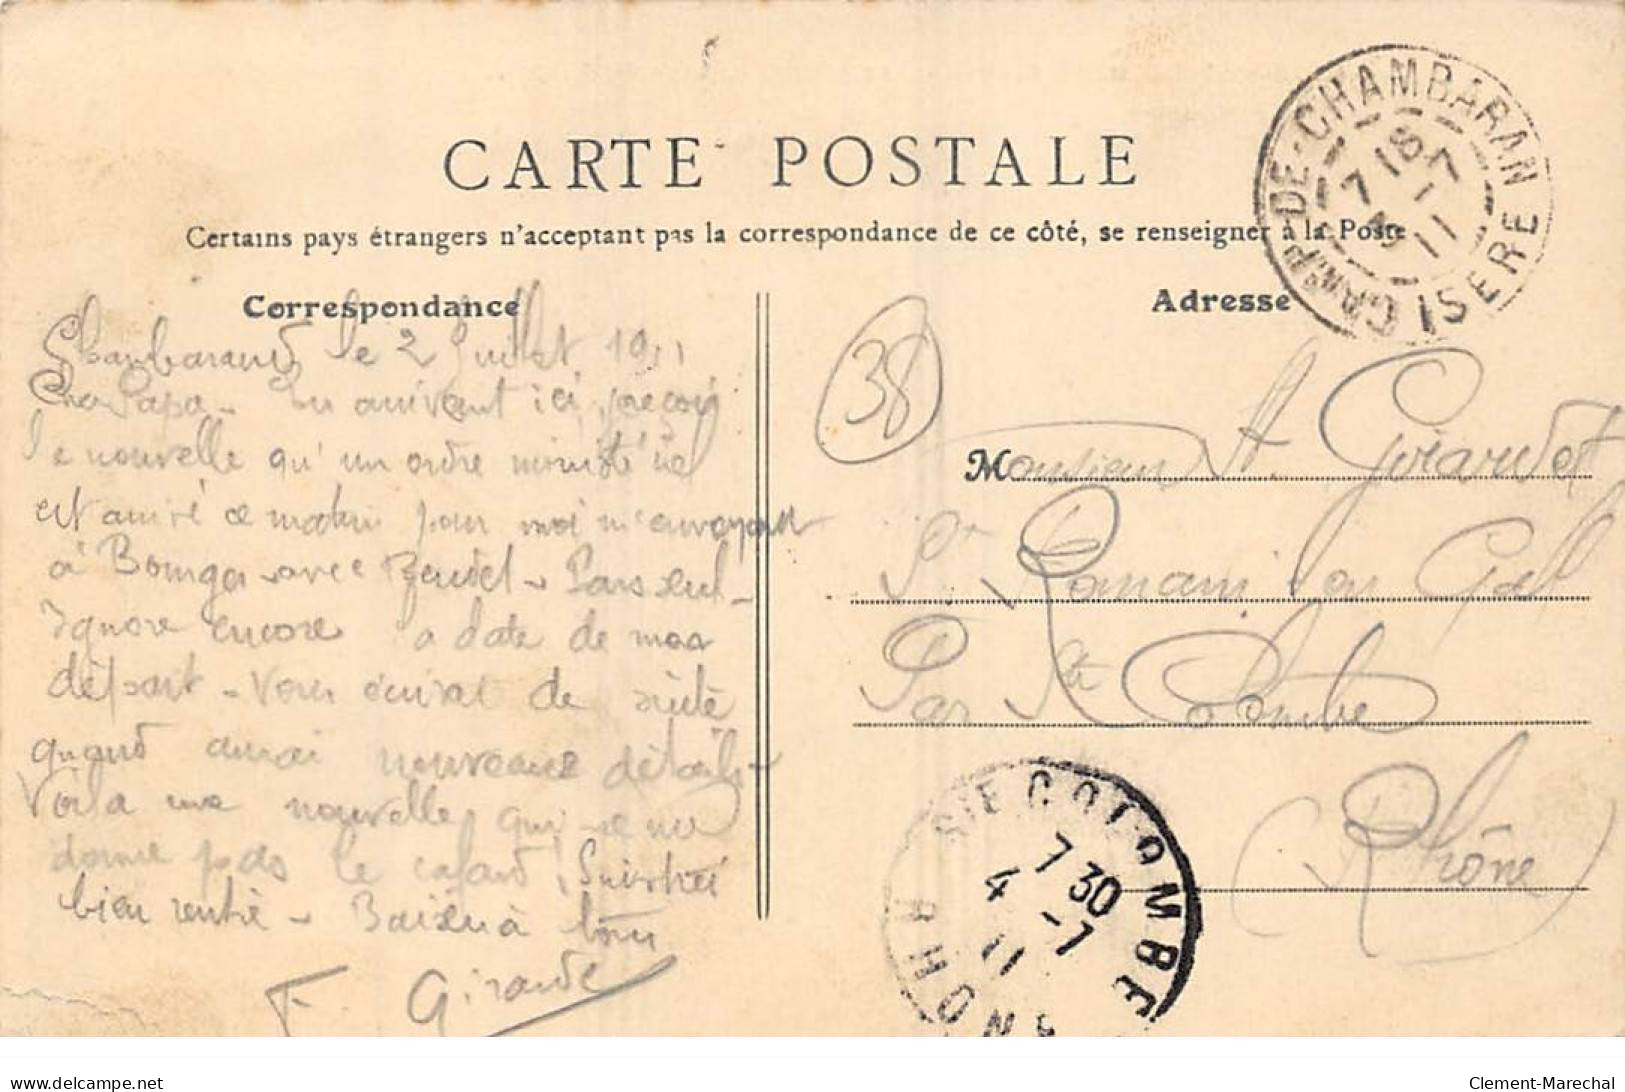 CARTE POSTALE
Certains pays étrangers n'acceptent pas la correspondance de ce côté, se renseigner à la Poste
Correspondance
Chambarand le 2 Juillet 1911
Cher Papa - En arrivant ici, je reçois
la nouvelle qu'un ordre ministériel
est arrivé ce matin pour moi m'envoyant
à avec -
Ignore encore la date de mon
départ - Vous écrirai de suite
quand aurai nouveaux détails -
Voilà une nouvelle qui ne me
donne pas le cafard.
bien rentré - Baisers à tous
F. Girardet
Adresse
38
Monsieur A. Girardet
St Romain en Gal
Par Ste Colombe
(Rhône)
CAMP DE CHAMBARAN
ISERE
7 18
3 -7
11
STE COLOMBE
RHONE
7 30
4 -7
11
delcampe.net
Clement-Marechal